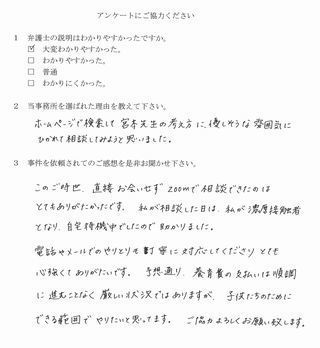 アンケートにご協力ください
1　弁護士の説明はわかりやすかったですか。
☑　大変わかりやすかった。
□　わかりやすかった。
□　普通
□　わかりにくかった。
2　当事務所を選ばれた理由を教えて下さい。
ホームページで検索して宮本先生の考え方に、優しそうな雰囲気に
ひかれて相談してみようと思いました。
3　事件を依頼されてのご感想を是非お聞かせ下さい。
このご時世、直接お会いせずzoomで相談できたのは
とてもありがたかったです。私が相談した日は、私が濃厚接触者
となり、自宅待機中でしたので助かりました。
電話やメールでのやりとりも丁寧に対応してくださりとても
心強くてありがたいです。予想通り、養育費の支払いは順調
に進むことなく厳しい状況ではありますが、子供たちのために
できる範囲でやりたいと思ってます。ご協力よろしくお願い致します。